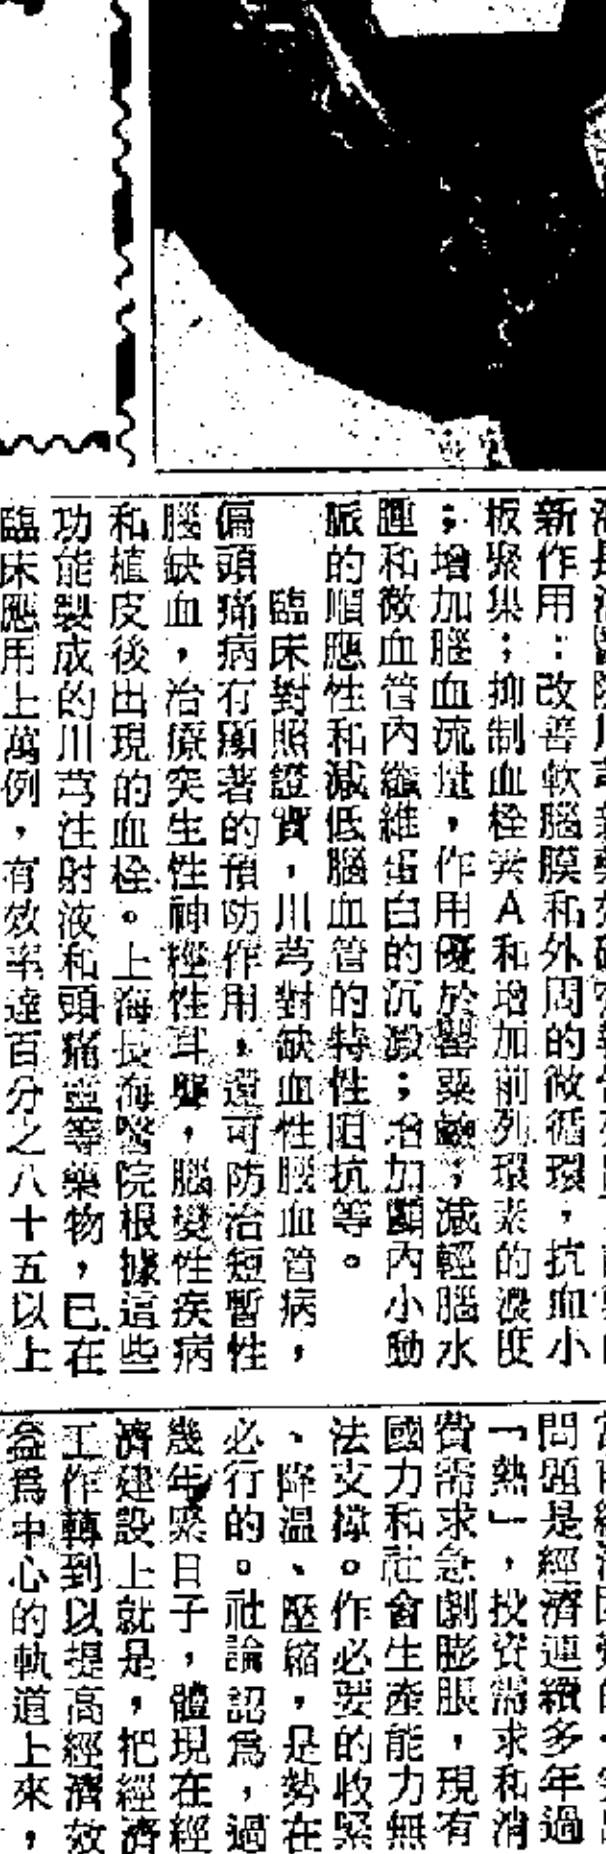 新作用：改善軟腦膜和外周的微循環，抗血小
板聚集；抑制血栓A和增加前列環素的濃度
；增加腦血流量，作用優於罌粟鹼；減輕腦水
腫和微血管內纖維蛋白的沉澱；增加顱內小動
脈的順應性和減低腦血管的特性阻抗等。
臨床對照證實，川芎對缺血性腦血管病，
偏頭痛病有顯著的預防作用，還可防治短暫性
腦缺血，治療突生性神經性耳聾，腦變性疾病
和植皮後出現的血栓。上海長海醫院根據這些
功能製成的川芎注射液和頭痛壺等藥物，已在
臨床應用上萬例，有效率達百分之八十五以上
問題是經濟連續多年過
「熱」，投資需求和消
費需求急劇膨脹，現有
國力和社會生產能力無
法支撐。作必要的收緊
、降溫、壓縮，是勢在
必行的。社論認爲，過
幾年緊日子，體現在經
濟建設上就是，把經濟
工作轉到以提高經濟效
益爲中心的軌道上來，